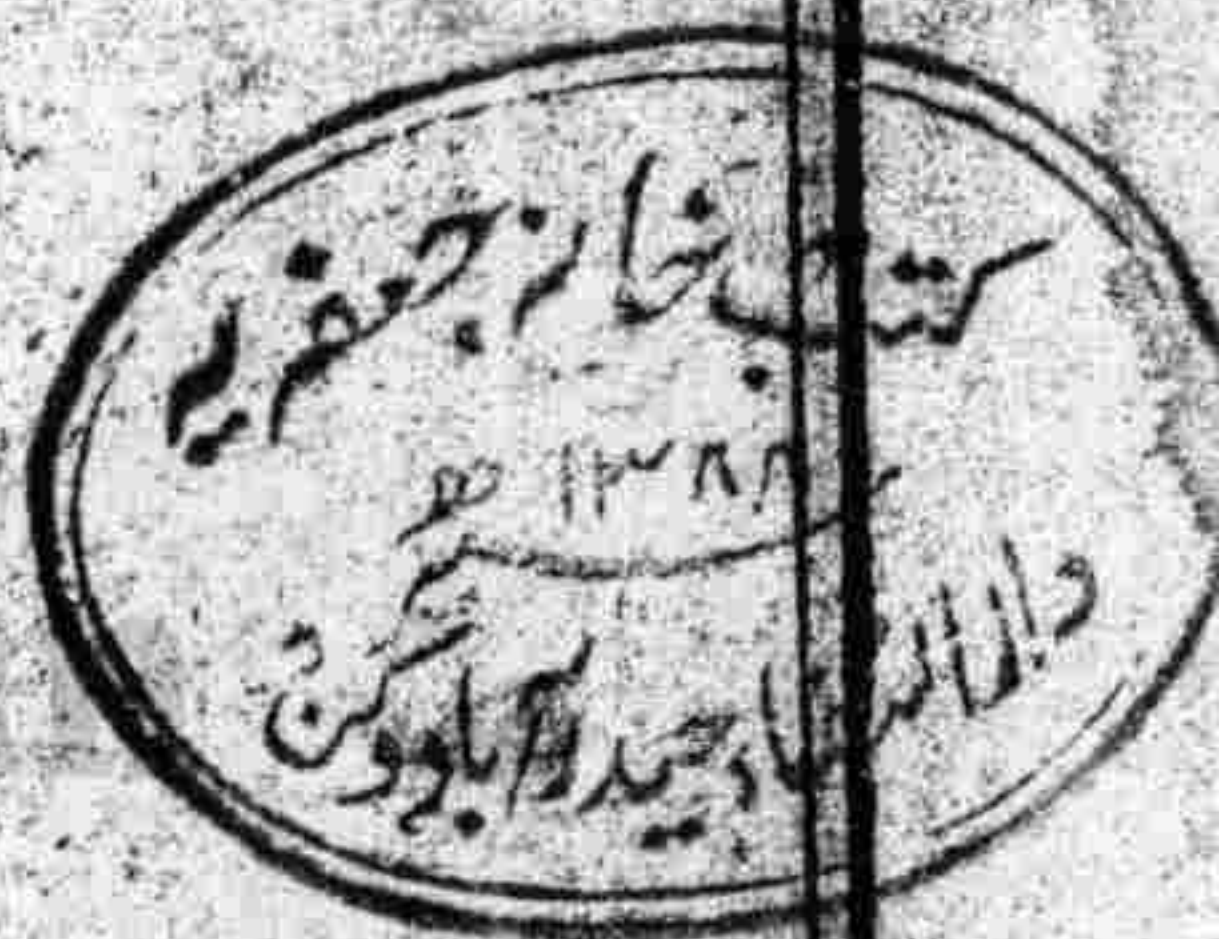 کتب خانہ جعفریہ
۱۳۸۸ ھ
دارالشفاء حیدرآباد دکن